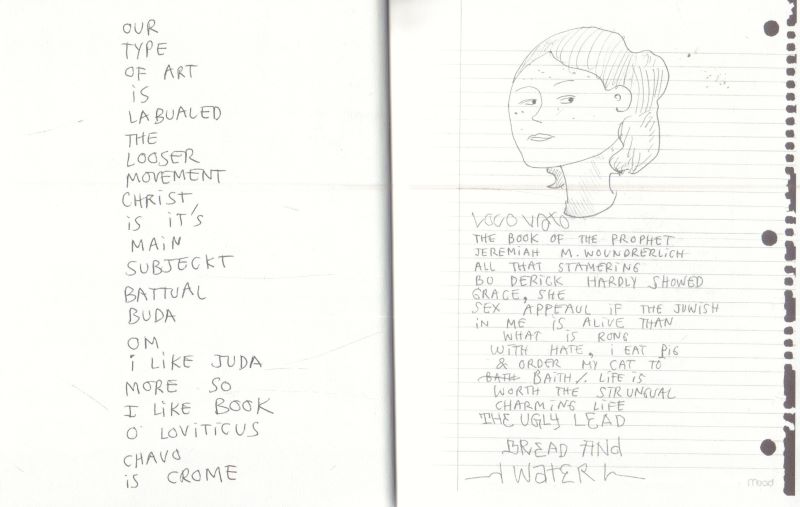 OUR
TYPE
OF ART
iS
LABUALED
THE
LOOSER
MOVEMENT
CHRIST,
iS iT'S
MAiN
SUBJECKT
BATTUAL
BUDA
OM
i LiKE JUDA
MORE SO
I LiKE BOOK
O' LOViTiCUS
CHAVO
iS CROME
LOCO VATO
THE BOOK OF THE PROPHET
JEREMiAH M. WOUNDRERLiCH
ALL THAT STAMERiNG
BO DERiCK HARDLY SHOWED
GRACE, SHE
SEX APPEAUL iF THE JUWiSH
iN ME iS ALiVE THAN
WHAT iS RONG
WiTH HATE, i EAT PiG
& ORDER MY CAT TO
BATH BAiTH/. LiFE iS
WORTH THE STRUNGUAL
CHARMiNG LiFE
THE UGLY LEAD
BREAD AND
WATER
Mead